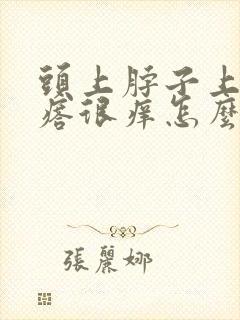 頭上脖子上
痞很痒怎麼
張麗娜